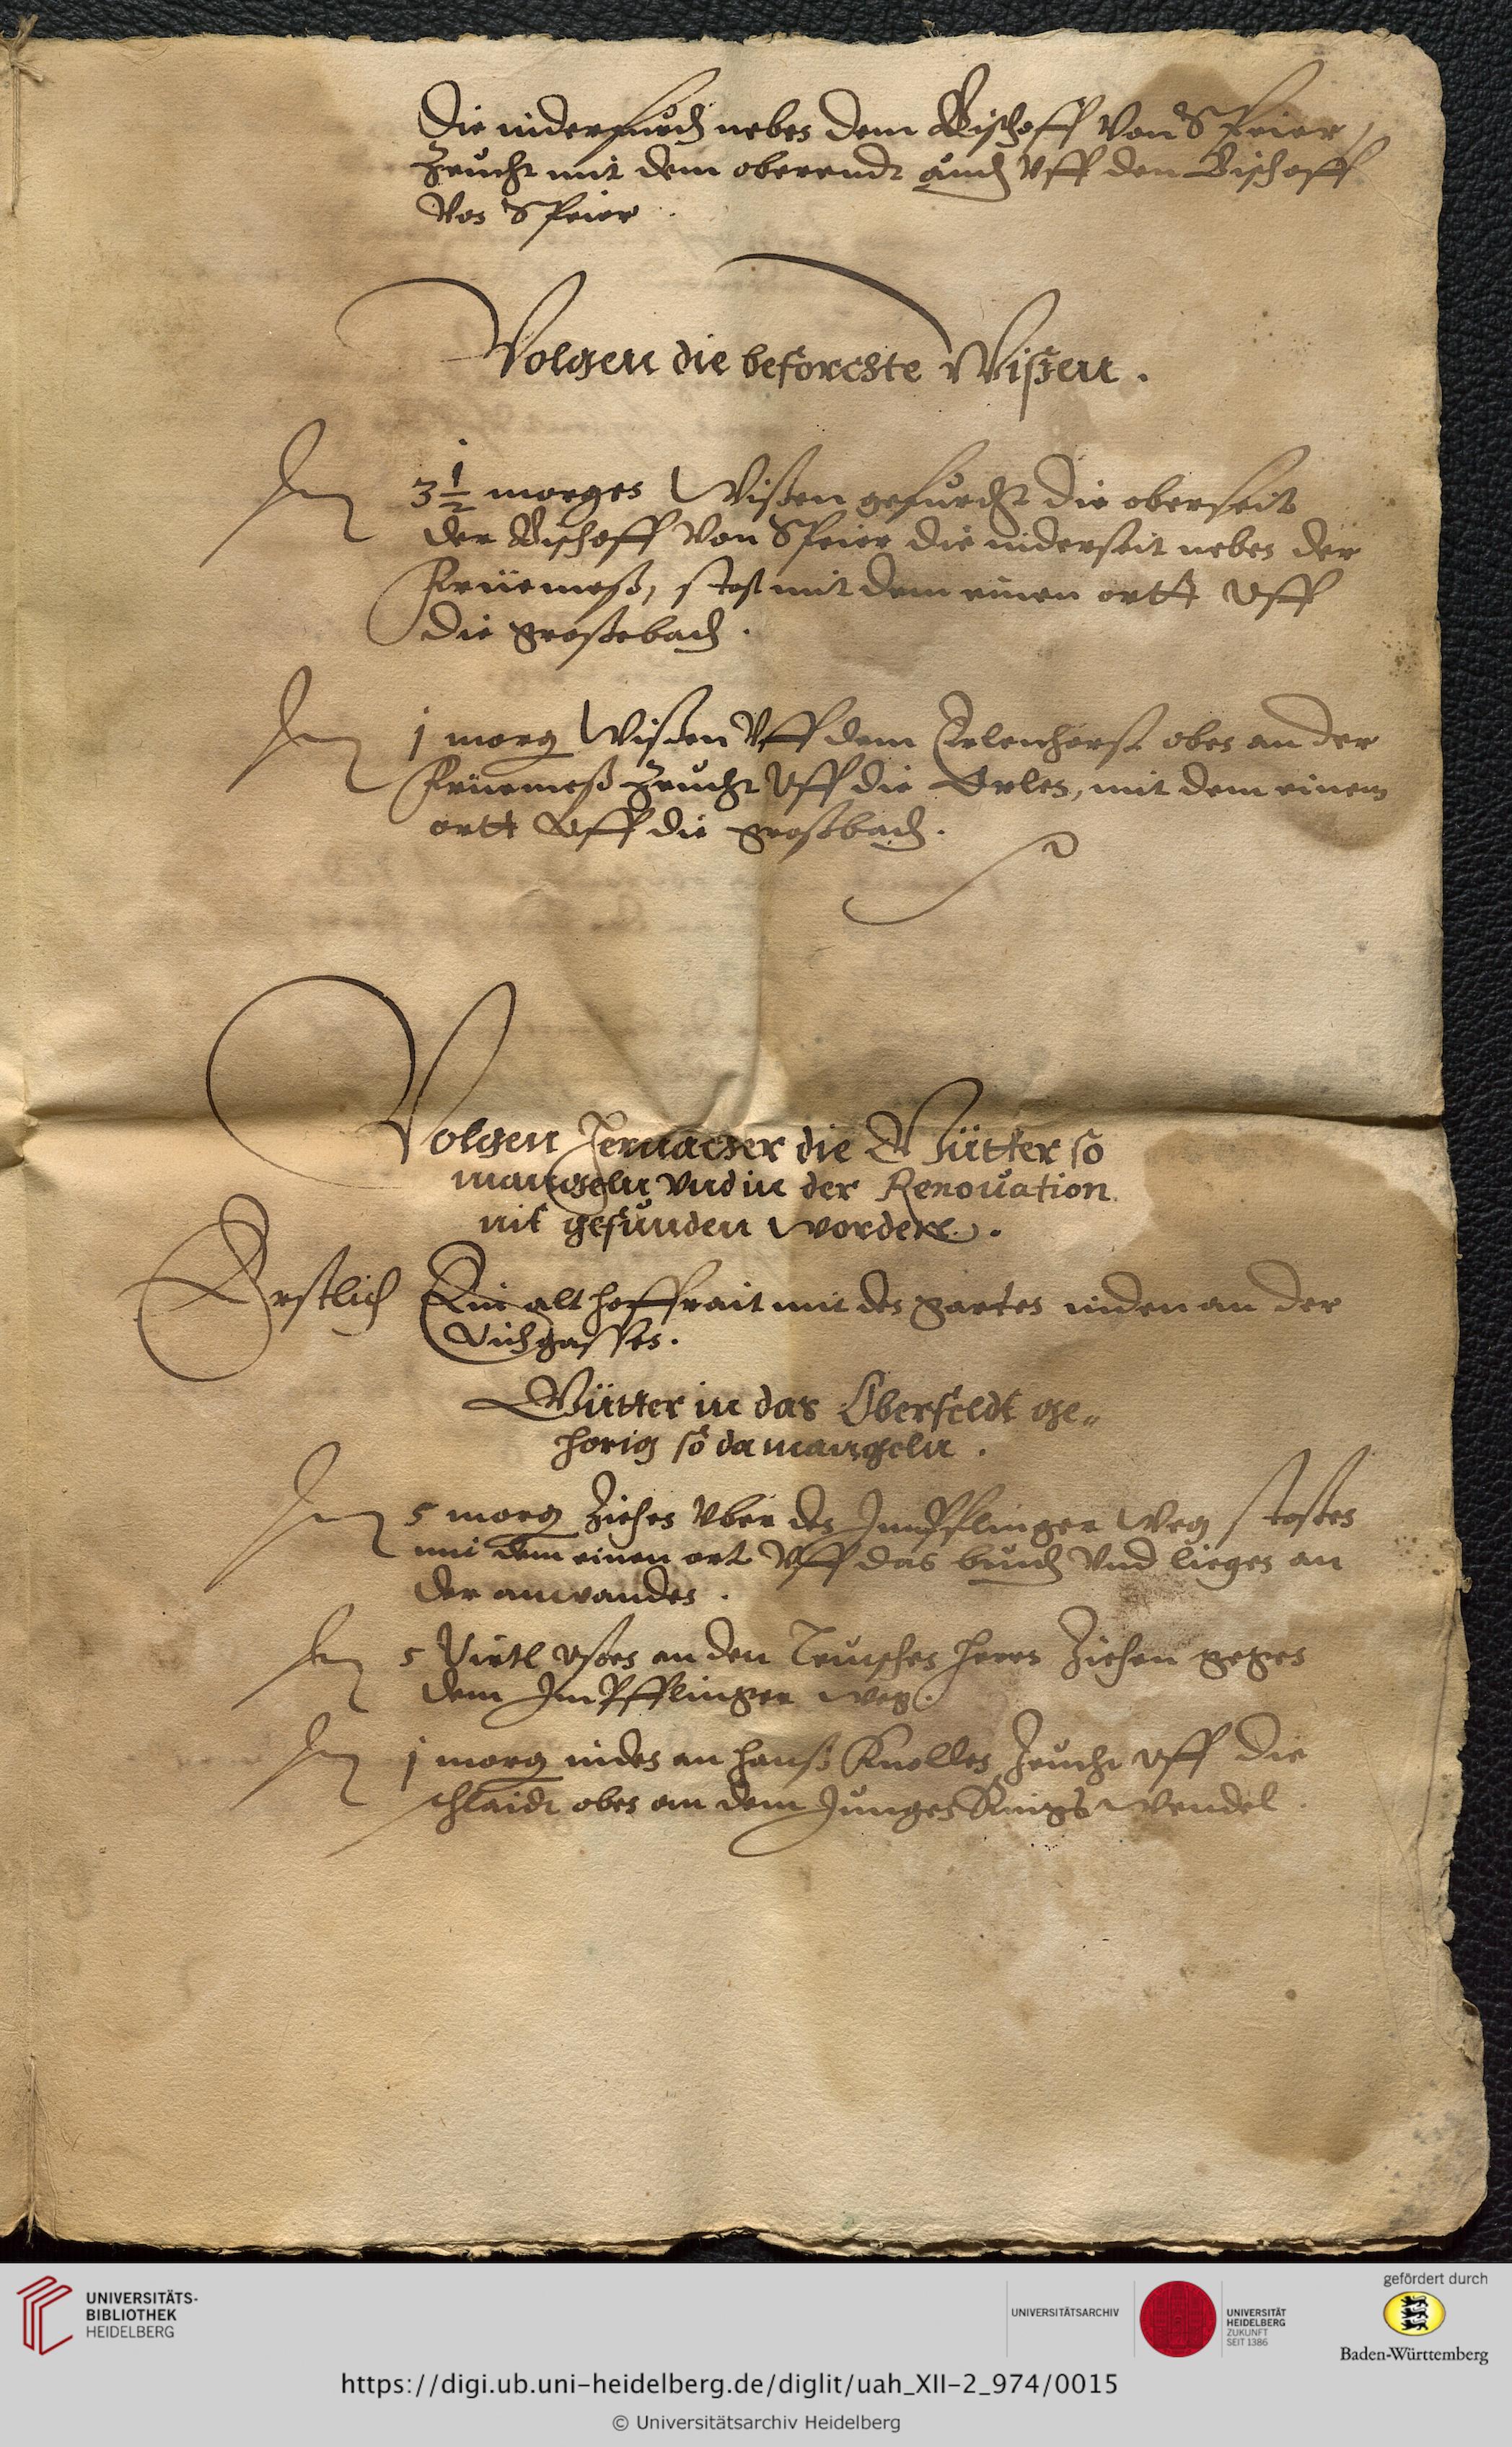 Die niderfurch neben dem Bischoff von Speier,
Zeucht mit dem oberendt auch vff den Bischoff
von Speier.
Volgen die beforchte Wißen.
Item 3 1/2 morgen Wißen gefurcht die oberseit
der Bischoff von Speier die niderseit neben der
Früemeß, stost mit dem einen ortt vff
die großebach.
Item 1 morg Wißen vff dem Erlenhorst oben an der
Früemeß Zeucht vff die Erlen, mit dem einem
ortt vff die großbach.
Volgen hernacher die Gütter so
mangeln vnd in der Renouation
nit gefunden worden.
Erstlich Ein alt hoffrait mit den garten niden an der
Vichgassen.
Gütter in das Oberfeldt ge„
horig so da mangeln.
Item 5 morg Ziehen vber den Impflinger weg stosten
mit dem einen ort vff das bruch vnd liegen an
der anwanden.
Item 5 Virtl vßen an den Teutschen herrn Ziehen gegen
dem Impfflinger weg.
Item 1 morg niden an hanß Knollen Zeucht vff die
schlaidt oben an dem Jungen Wendel
UNIVERSITÄTS-
BIBLIOTHEK
HEIDELBERG
UNIVERSITÄTSARCHIV
UNIVERSITÄT
HEIDELBERG
ZUKUNFT
SEIT 1386
gefördert durch
Baden-Württemberg
https://digi.ub.uni-heidelberg.de/diglit/uah_XII-2_974/0015
© Universitätsarchiv Heidelberg